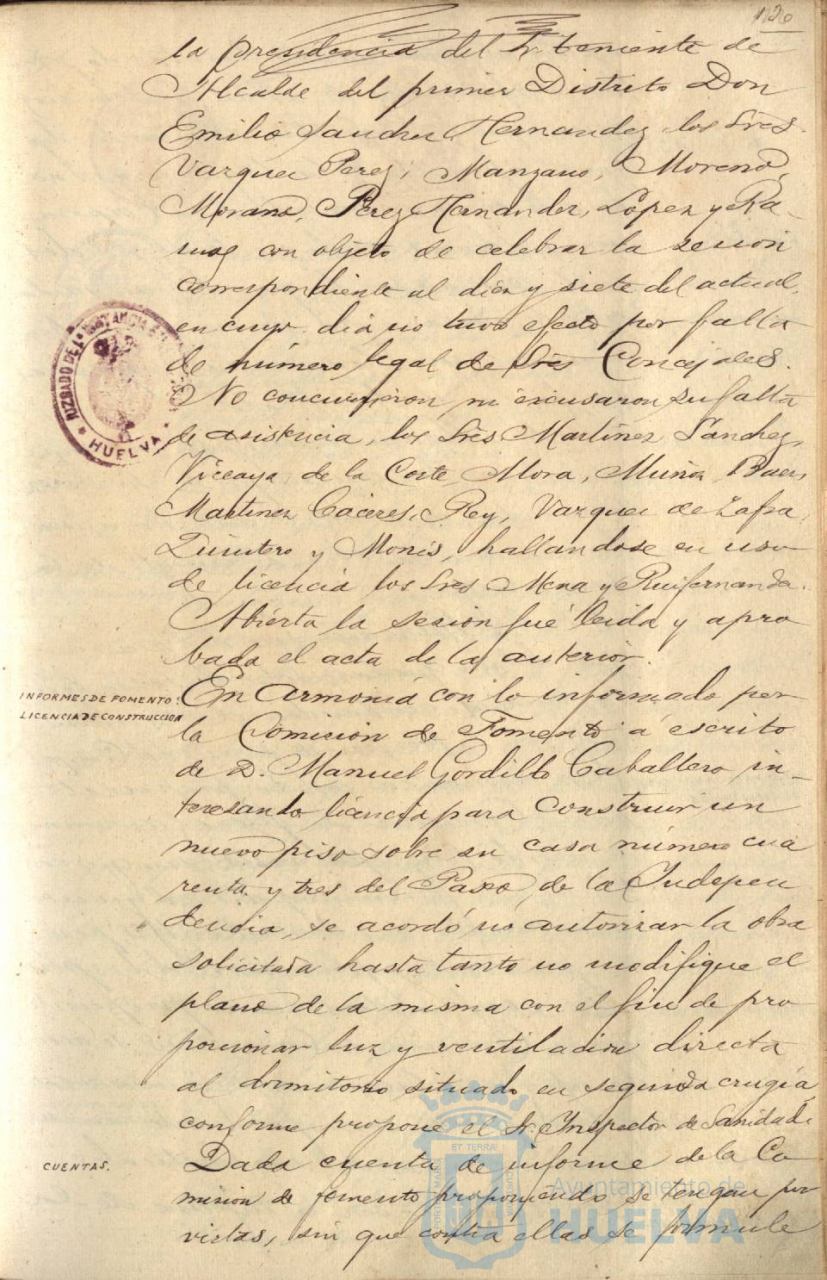 126
la presidencia del Sr teniente de
Alcalde del primer Distrito Don
Emilio Sanchez Hernandez los Sres.
Vazquez Perez, Manzano, Moreno,
Morano, Perez Hernandez, Lopez y Ra-
mos con objeto de celebrar la sesion
correspondiente al diez y siete del actual,
en cuyo dia no tuvo efecto por falta
de número legal de Sres Concejales.
No concurrieron, ni excusaron su falta
de asistencia, los Sres Martinez Sánchez,
Vizcaya, de la Corte, Mora, Muñoz,
Martinez Cáceres, Rey, Vazquez de Zafra,
Quintero y Monis, hallandose en uso
de licencia los Sres Mena y Ruifernandez.
Abierta la sesion fué leida y apro
bada el acta de la anterior.
INFORMES DE FOMENTO:
LICENCIA DE CONSTRUCCION
En armonía con lo informado por
la Comision de Fomento á escrito
de D. Manuel Gordillo Caballero in-
teresando licencia para construir un
nuevo piso sobre su casa número cua
renta y tres del Paseo de la Indepen
dencia, se acordó no autorizar la obra
solicitada hasta tanto no modifique el
plano de la misma con el fin de pro
porcionar luz y ventilacion directa
al dormitorio situado en segunda crugía,
conforme propone el Sr. Inspector de Sanidad.
CUENTAS.
Dada cuenta de informe de la Co
mision de fomento proponiendo se tengan por
vistas, sin que contra ellas se formule
JUZGADO DE 1ª INSTANCIA
HUELVA
ET TERRA
Ayuntamiento de
HUELVA